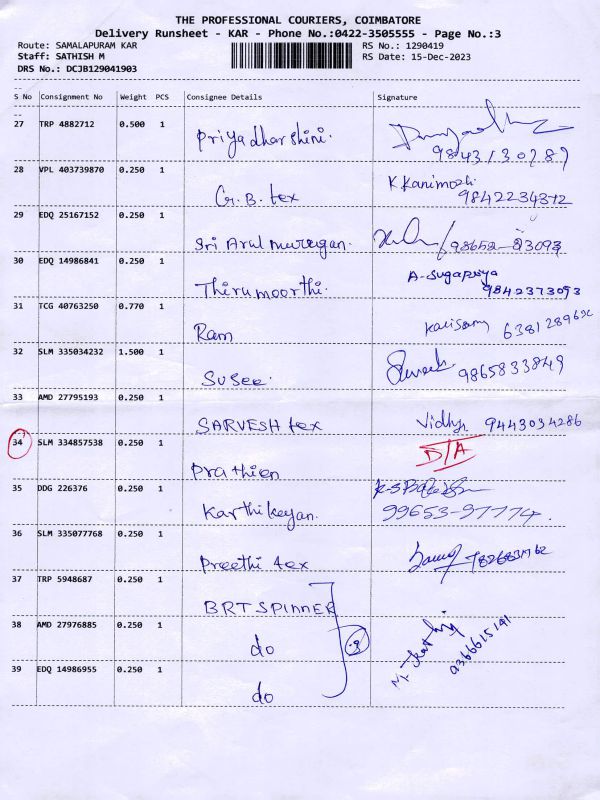 THE PROFESSIONAL COURIERS, COIMBATORE
Delivery Runsheet - KAR - Phone No.:0422-3505555 - Page No.:3
Route: SAMALAPURAM KAR RS No.: 1290419
Staff: SATHISH M RS Date: 15-Dec-2023
DRS No.: DCJB129041903
S No Consignment No Weight PCS Consignee Details Signature
27 TRP 4882712 0.500 1 Priyadharshini.
28 VPL 403739870 0.250 1 G.B. tex K.Kanimozhi
9842234372
29 EDQ 25167152 0.250 1 Sri Arul Murugan. 98652-83093
30 EDQ 14986841 0.250 1 Thirumoorthi. A-Sugapriya
9842373093
31 TCG 40763250 0.770 1 Ram
32 SLM 335034232 1.500 1 Susee. Suresh 9865833849
33 AMD 27795193 0.250 1 SARVESH tex Vidhya 9443034286
34 SLM 334857538 0.250 1 Prathien D/A
35 DDG 226376 0.250 1 Karthikeyan.
99653-97774.
36 SLM 335077768 0.250 1 Preethi tex
37 TRP 5948687 0.250 1 BRT SPINNER
38 AMD 27976885 0.250 1 do
39 EDQ 14986955 0.250 1 do